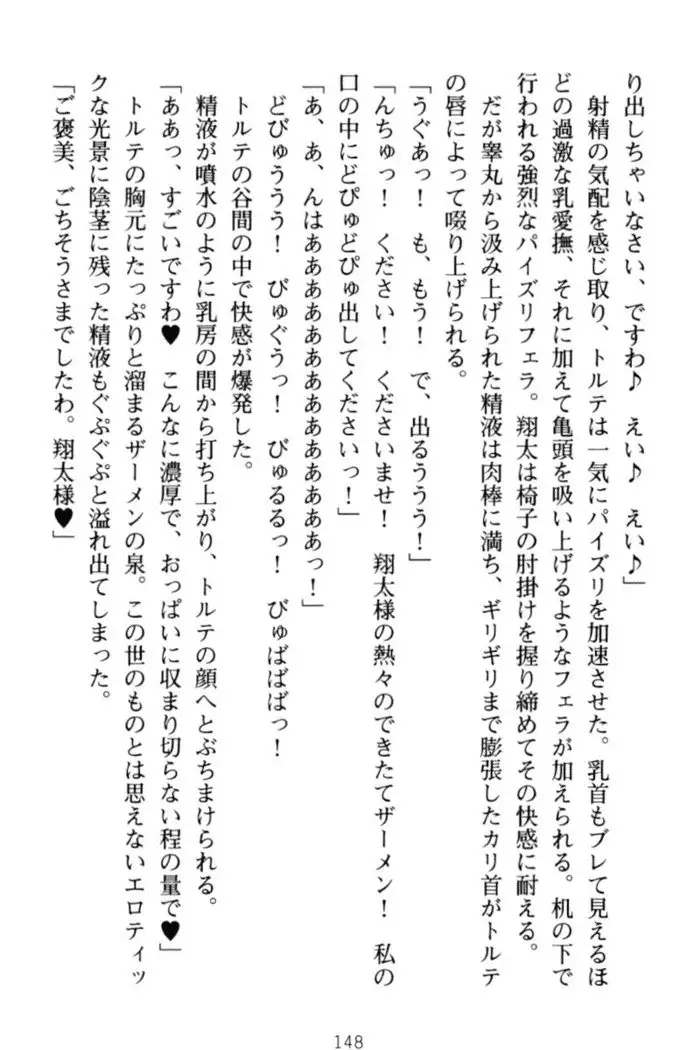 り出しちゃいなさい、ですわ♪　えい♪　えい♪」
　射精の気配を感じ取り、トルテは一気にパイズリを加速させた。乳首もブレて見えるほ
どの過激な乳愛撫、それに加えて亀頭を吸い上げるようなフェラが加えられる。机の下で
行われる強烈なパイズリフェラ。翔太は椅子の肘掛けを握り締めてその快感に耐える。
　だが睾丸から汲み上げられた精液は肉棒に満ち、ギリギリまで膨張したカリ首がトルテ
の唇によって啜り上げられる。
「うぐあっ！　も、もう！　で、出るううう！」
「んちゅっ！　ください！　くださいませ！　翔太様の熱々のできたてザーメン！　私の
口の中にどぴゅどぴゅ出してくださいっ！」
「あ、あ、んはあああああああああああああああっ！」
　どびゅううう！　びゅぐうっ！　びゅるるっ！　びゅばばばっ！
　トルテの谷間の中で快感が爆発した。
　精液が噴水のように乳房の間から打ち上がり、トルテの顔へとぶちまけられる。
「ああっ、すごいですわ♥　こんなに濃厚で、おっぱいに収まり切らない程の量で♥」
　トルテの胸元にたっぷりと溜まるザーメンの泉。この世のものとは思えないエロティッ
クな光景に陰茎に残った精液もぐぷぐぷと溢れ出てしまった。
「ご褒美、ごちそうさまでしたわ。翔太様♥」
148